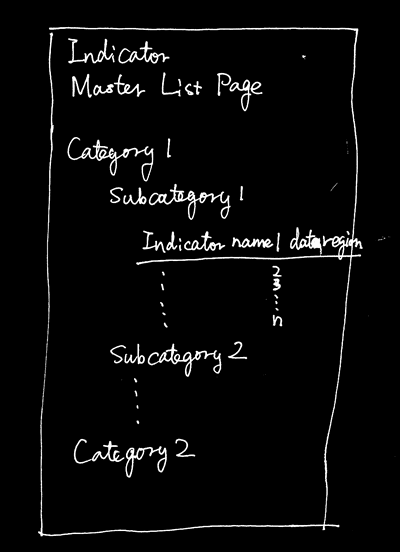 Indicator
Master List Page
Category 1
Subcategory 1
Indicator name 1 data region
2
3
n
Subcategory 2
Category 2